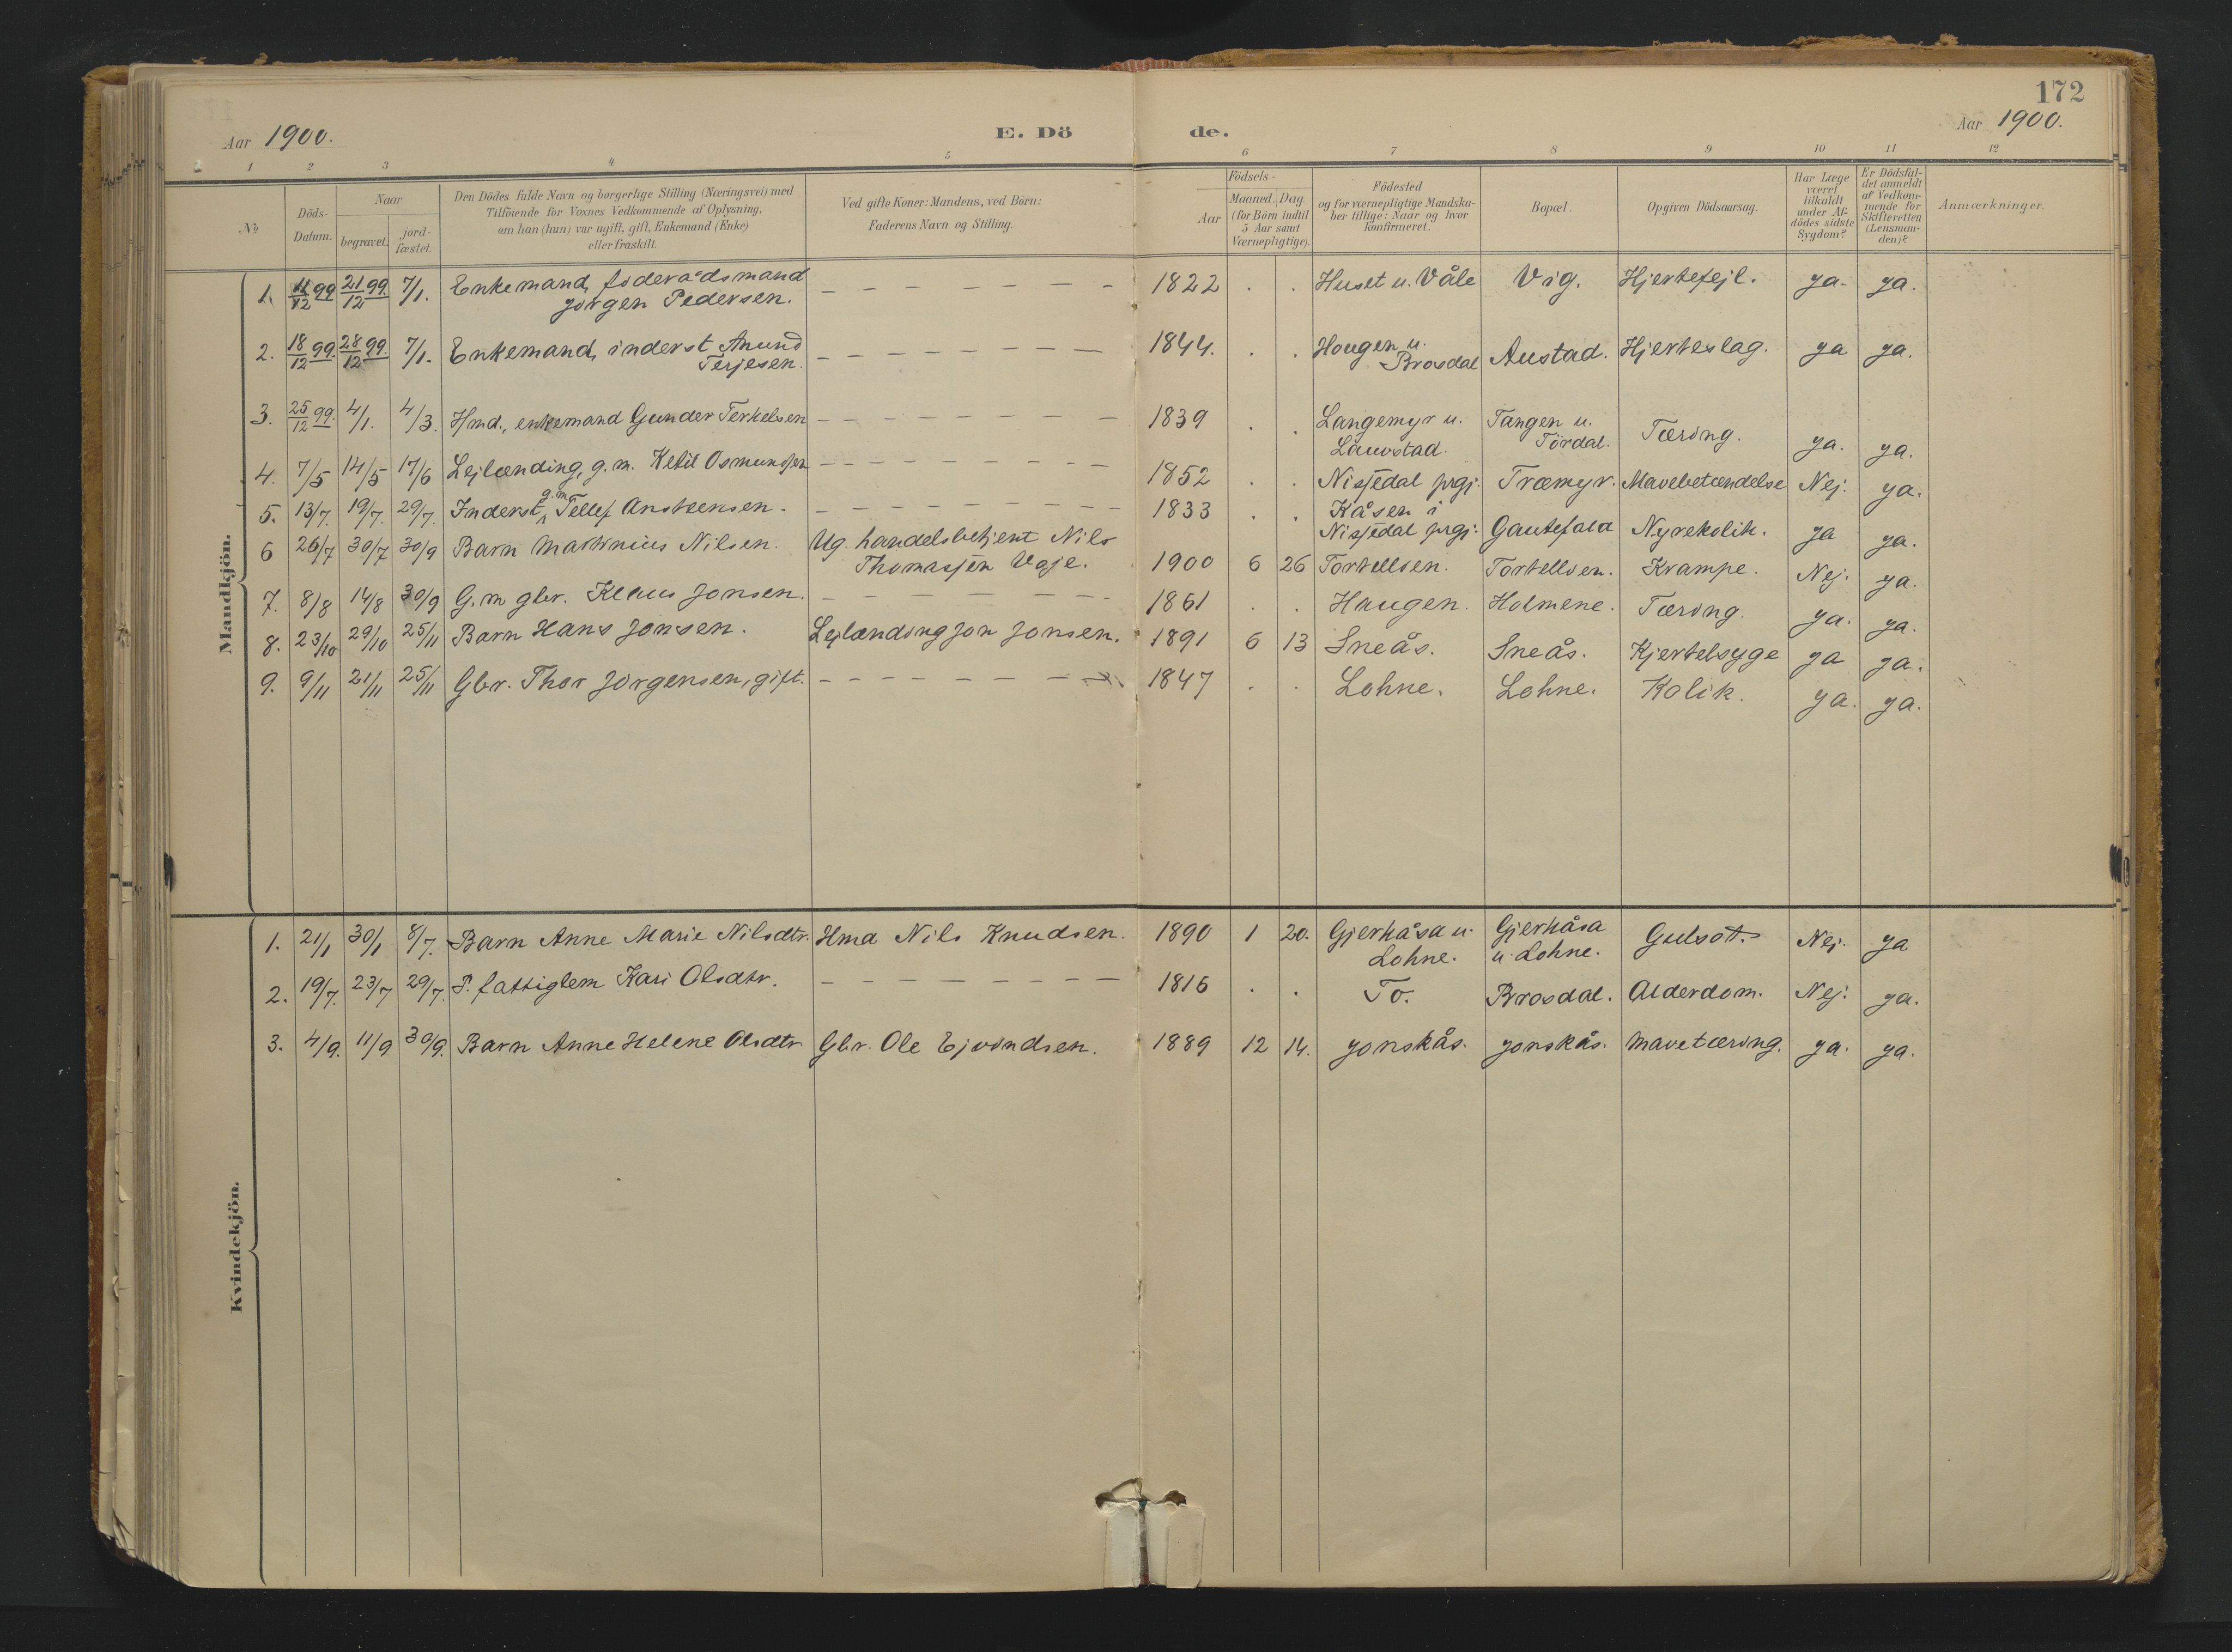 172
Aar 1900.
E. Dö de.
Aar 1900.
1 2 3 4 5 6 7 8 9 10 11 12
No
Döds-
Datum.
Naar
begravet.
jord-
fæstet.
Den Dödes fulde Navn og borgerlige Stilling (Næringsvei) med
Tilföiende for Voxnes Vedkommende af Oplysning,
om han (hun) var ugift, gift, Enkemand (Enke)
eller fraskilt.
Ved gifte Koner: Mandens, ved Börn:
Faderens Navn og Stilling.
Födsels-
Aar
Maaned. Dag
(for Börn indtil
5 Aar samt
Værnepligtige).
Födested
og for værnepligtige Mandska-
ber tillige: Naar og hvor
konfirmeret.
Bopæl.
Opgiven Dödsaarsag.
Har Læge
været
tilkaldt
under Af-
dödes sidste
Sygdom?
Er Dödsfal-
det anmeldt
af Vedkom-
mende for
Skifteretten
(Lensman-
den)?
Anmærkninger.
Mandkjön.
1. 11/12 99 21/12 99. 7/1. Enkemand, foderådsmand – – – – – – – 1822 . . Huset u. Våle Vig. Hjertefejl. ja. ja.
Jørgen Pedersen.
2. 18/12 99. 28/12 99. 7/1. Enkemand, inderst Anund – – – – – – – 1844. . . Hougen u. Austad. Hjerteslag. ja ja.
Terjesen. Brosdal
3. 25/12 99. 4/1. 4/3. Hmd., enkemand Gunder Terkelsen – – – – – – – 1839 . . Langemyr u. Tangen u. Tæring. ja. ja.
Lauvstad. Tördal.
4. 7/5 14/5 17/6 Lejlænding, g. m. Ketil Osmundsen – – – – – – – 1852 . . Nissedal prgj. Træmyr. Mavebetændelse Nej. ja.
5. 13/7. 19/7. 29/7. Inderst, g. m. Tellef Anstensen. – – – – – – – 1833 . . Kåsen i
Nissedal prgj. Gautefald Nyrekolik. ja ja.
6 26/7 30/7 30/9 Barn Martinius Nilsen. Ug. handelsbetjent Nils
Thomassen Vaje. 1900 6 26 Tortellien. Tortellien. Krampe. Nej. ja.
7. 8/8 14/8 30/9 G. m gbr. Klaus Jonsen. – – – – – – – 1861 . . Haugen. Holmene. Tæring. ja. ja.
8. 23/10 29/10 25/11 Barn Hans Jonsen. Lejlænding Jon Jonsen. 1891 6 13 Sneås. Sneås. Kjertelsyge ja ja.
9. 9/11 21/11 25/11 Gbr. Thor Jörgensen, gift. – – – – – – – 1847 . . Lohne. Lohne. Kolik. ja. ja.
Kvindekjön.
1. 21/1 30/1 8/7. Barn Anne Marie Nilsdtr. Hma Nils Knudsen. 1890 1 20. Gjerkåsa u. Gjerkåsa Gulsött. Nej. ja
Lohne. u. Lohne.
2. 19/7. 23/7 29/7. P. fattiglem Kari Olsdtr. – – – – – – – 1816 . . To. Brosdal. Alderdom. Nej. ja.
3. 4/9. 11/9 30/9. Barn Anne Helene Olsdtr. Gbr. Ole Ejvindsen. 1889 12 14. Jonskås. Jonskås. Mavetæring. ja. ja.